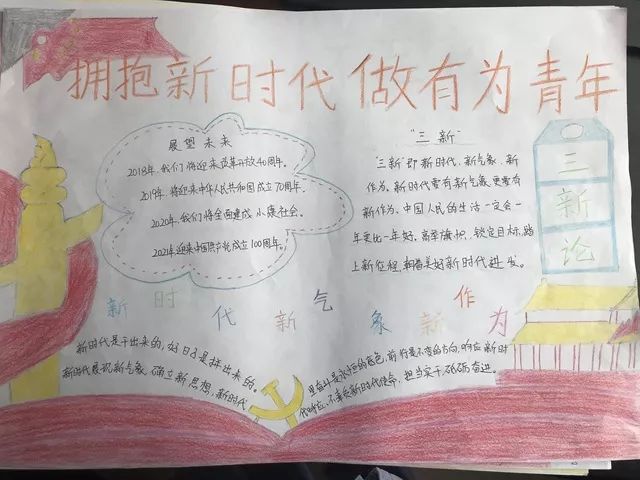 拥抱新时代 做有为青年
展望未来
2018年,我们将迎来改革开放40周年。
2019年 将迎来中华人民共和国成立70周年。
2020年,我们将全面建成小康社会。
2021年迎来中国共产党成立100周年。
"三新"
"三新"即新时代、新气象、新
作为。新时代要有新气象更要有
新作为、中国人民的生活一定会一
年更比一年好。高举旗帜、锁定目标、踏
上新征程,朝着美好新时代进发。
三
新
论
新时代新气象新作为
新时代是干出来的,好日子是拼出来的。
新时代展现新气象,确立新思想,新时代
里奋斗是永恒的底色,前行是不变的方向,响应新时
代呼应、不辜负新时代使命,担当实干,砥砺奋进。